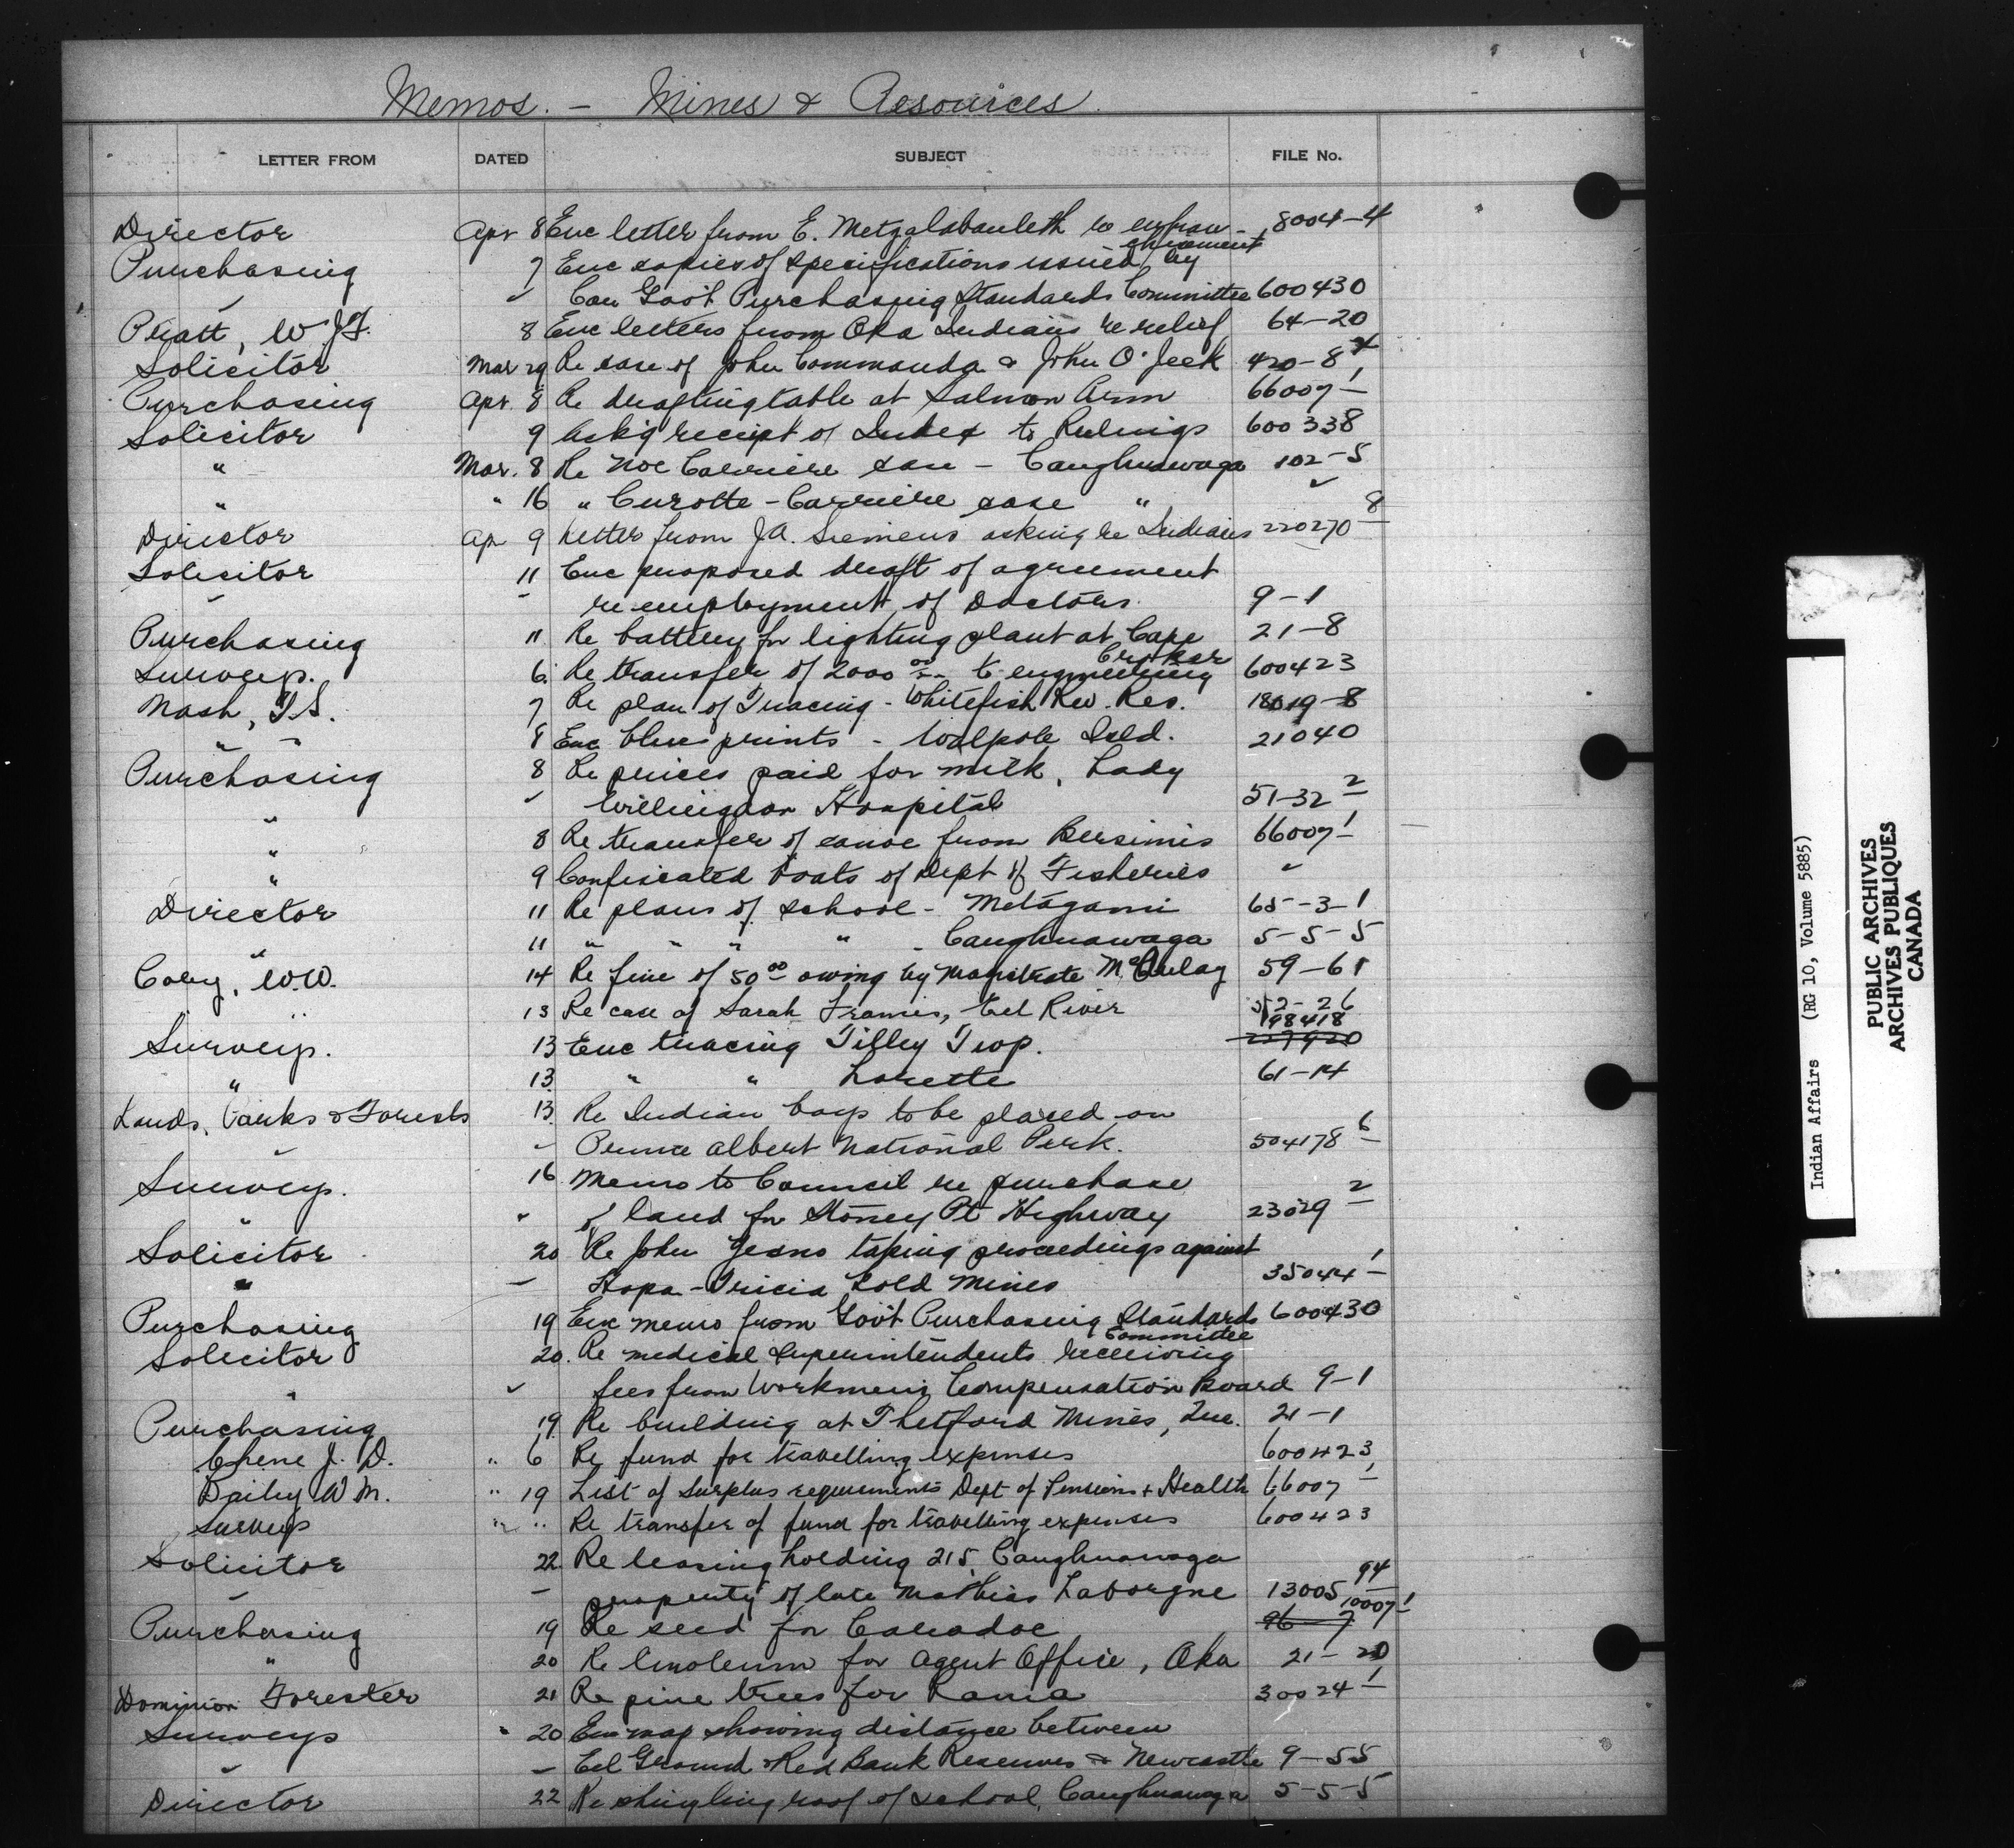 Memos. – Mines & Resources
LETTER FROM DATED SUBJECT FILE No.
Director Apr 8 Enc letter from E. re enfran- 8004-4
chisement
Purchasing 7 Enc copies of specifications issued by
" Can Gov't Purchasing Standards Committee 600430
Pratt, W.J.F. 8 Enc letters from Oka Indians re relief 64-20
Solicitor Mar 29 Re case of John Commanda & John O'Jeek 420-8 4
Purchasing Apr. 8 Re drafting table at Salmon Arm 66007 1
Solicitor 9 Ack'g receipt of Index to Rulings 600338
" Mar. 8 Re Noe Carriere case - Caughnawaga 102-5
" " 16 " Curotte-Carriere case " "
Director Ap 9 Letter from J.A. Siemens asking re Indians 220270 8
Solicitor 11 Enc proposed draft of agreement
" re employment of Doctors. 9-1
Purchasing 11 Re battery for lighting plant at Cape 21-8
Croker
Surveys. 6 Re transfer of 2000 00 to engineering 600423
Nash, T.S. 7 Re plan of Tracing - Whitefish Riv. Res. 18019-8
" " 8 Enc blue prints - Walpole Isld. 21040
Purchasing 8 Re prices paid for milk, Lady
" Willingdon Hospital 51-32 2
" 8 Re transfer of canoe from Bersimis 66007 1
" 9 Confiscated boats of Dept of Fisheries "
Director 11 Re plans of school - Matagami 65-3-1
" 11 " " " " - Caughnawaga 5-5-5
Cory, W.W. 14 Re fine of 50 00 owing by Magistrate McAulay 59-61
" 13 Re case of Sarah Francis, Eel River 52-26
198418
Surveys. 13 Enc tracing Tilley Twp. 227920
" 13 " " Lorette 61-14
Lands, Parks & Forests 13 Re Indian boys to be placed on
" Prince Albert National Park. 504178 6
Surveys. 16 Memo to Council re purchase
" " of land for Stoney Pt Highway 23029 2
Solicitor 20 Re John Yesno taking proceedings against
" " Hopa-Tricia Gold Mines 35044 1
Purchasing 19 Enc memo from Gov't Purchasing Standards 600430
Committee
Solicitor 20. Re medical superintendents receiving
" " fees from Workmen's Compensation Board 9-1
Purchasing 19 Re building at Thetford Mines, Que. 21-1
Chene J. D. " 6 Re fund for travelling expenses 600423
Daily W M. " 19 List of Surplus requirements Dept of Pensions + Health 66007 1
Surveys " " Re transfer of fund for travelling expenses 600423
Solicitor 22 Re leasing holding 215 Caughnawaga
" " property of late Mathias Laborgne 13005 94
10007 1
Purchasing 19 Re seed for Caradoc 96-7
" 20 Re linoleum for Agent Office, Oka 21-20
Dominion Forester 21 Re pine trees for Rama 30024 1
Surveys " 20 Enc map showing distance between
" " Eel Ground & Red Bank Reserves & Newcastle 9-55
Director 22 Re shingling roof of school, Caughnawaga 5-5-5
Indian Affairs (RG 10, Volume 5885)
PUBLIC ARCHIVES
ARCHIVES PUBLIQUES
CANADA